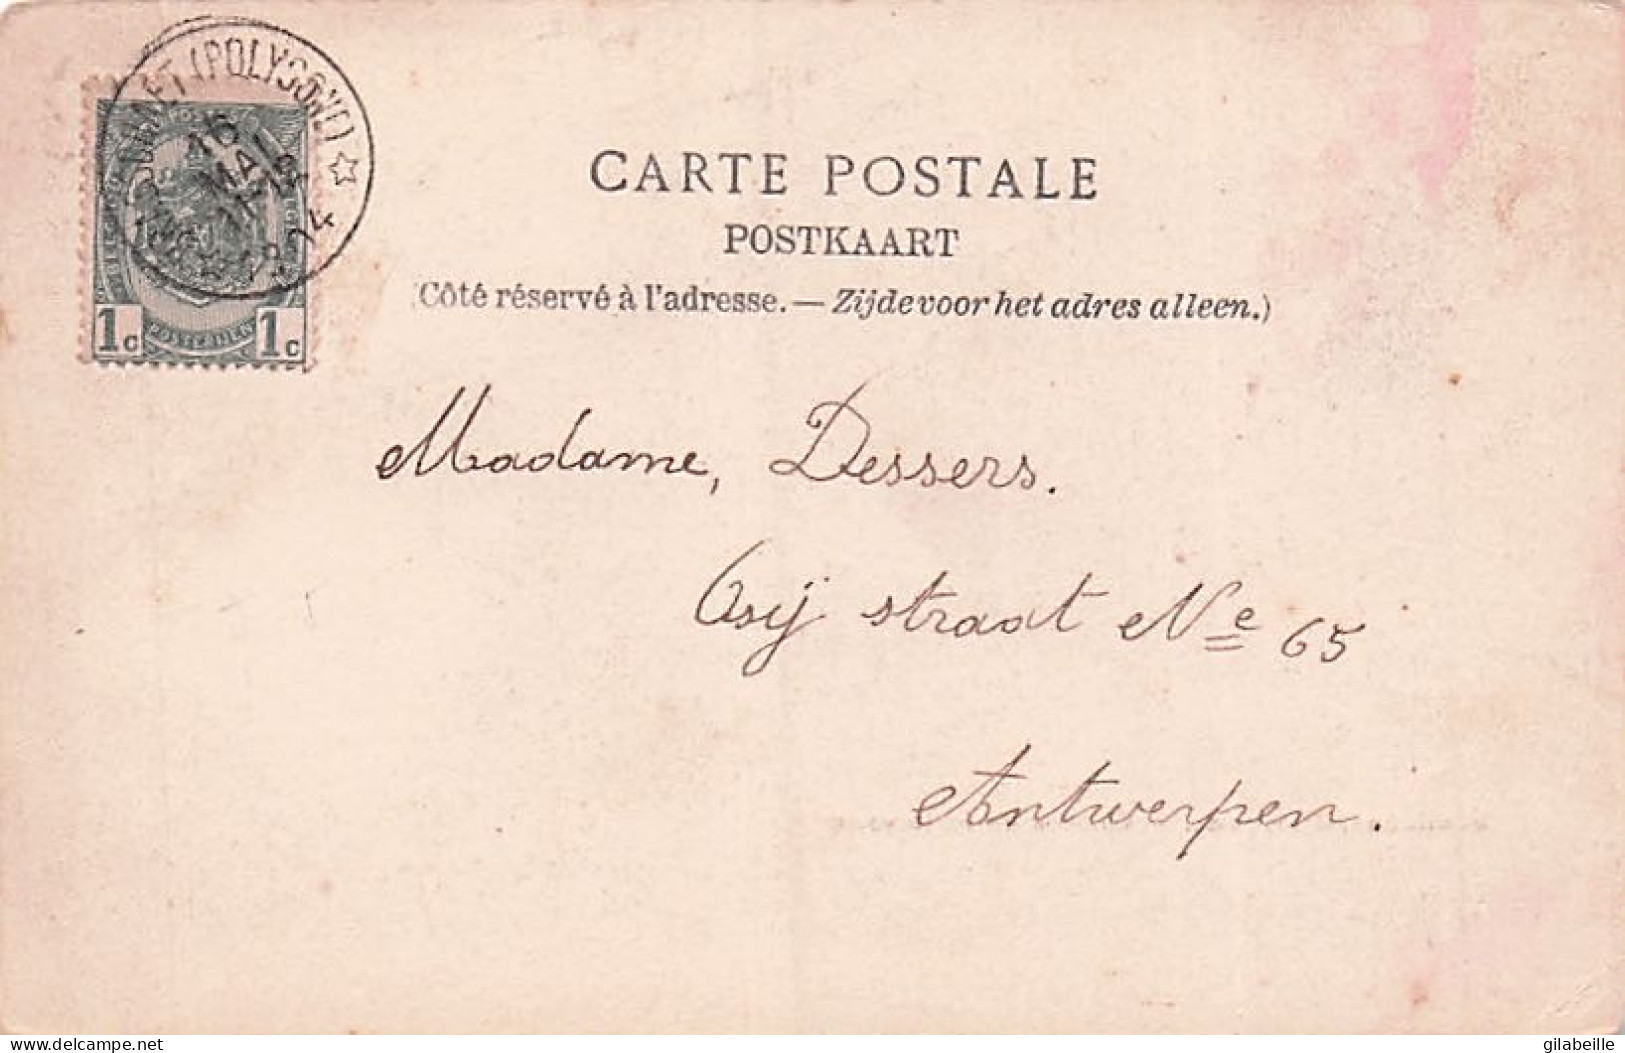 (POLYGONE)
16
MAI
1904
1c 1c
POSTERIJEN
CARTE POSTALE
POSTKAART
(Côté réservé à l'adresse. — Zijde voor het adres alleen.)
Madame, Dessers.
straat Ne 65
Antwerpen.
delcampe.net
gilabeille